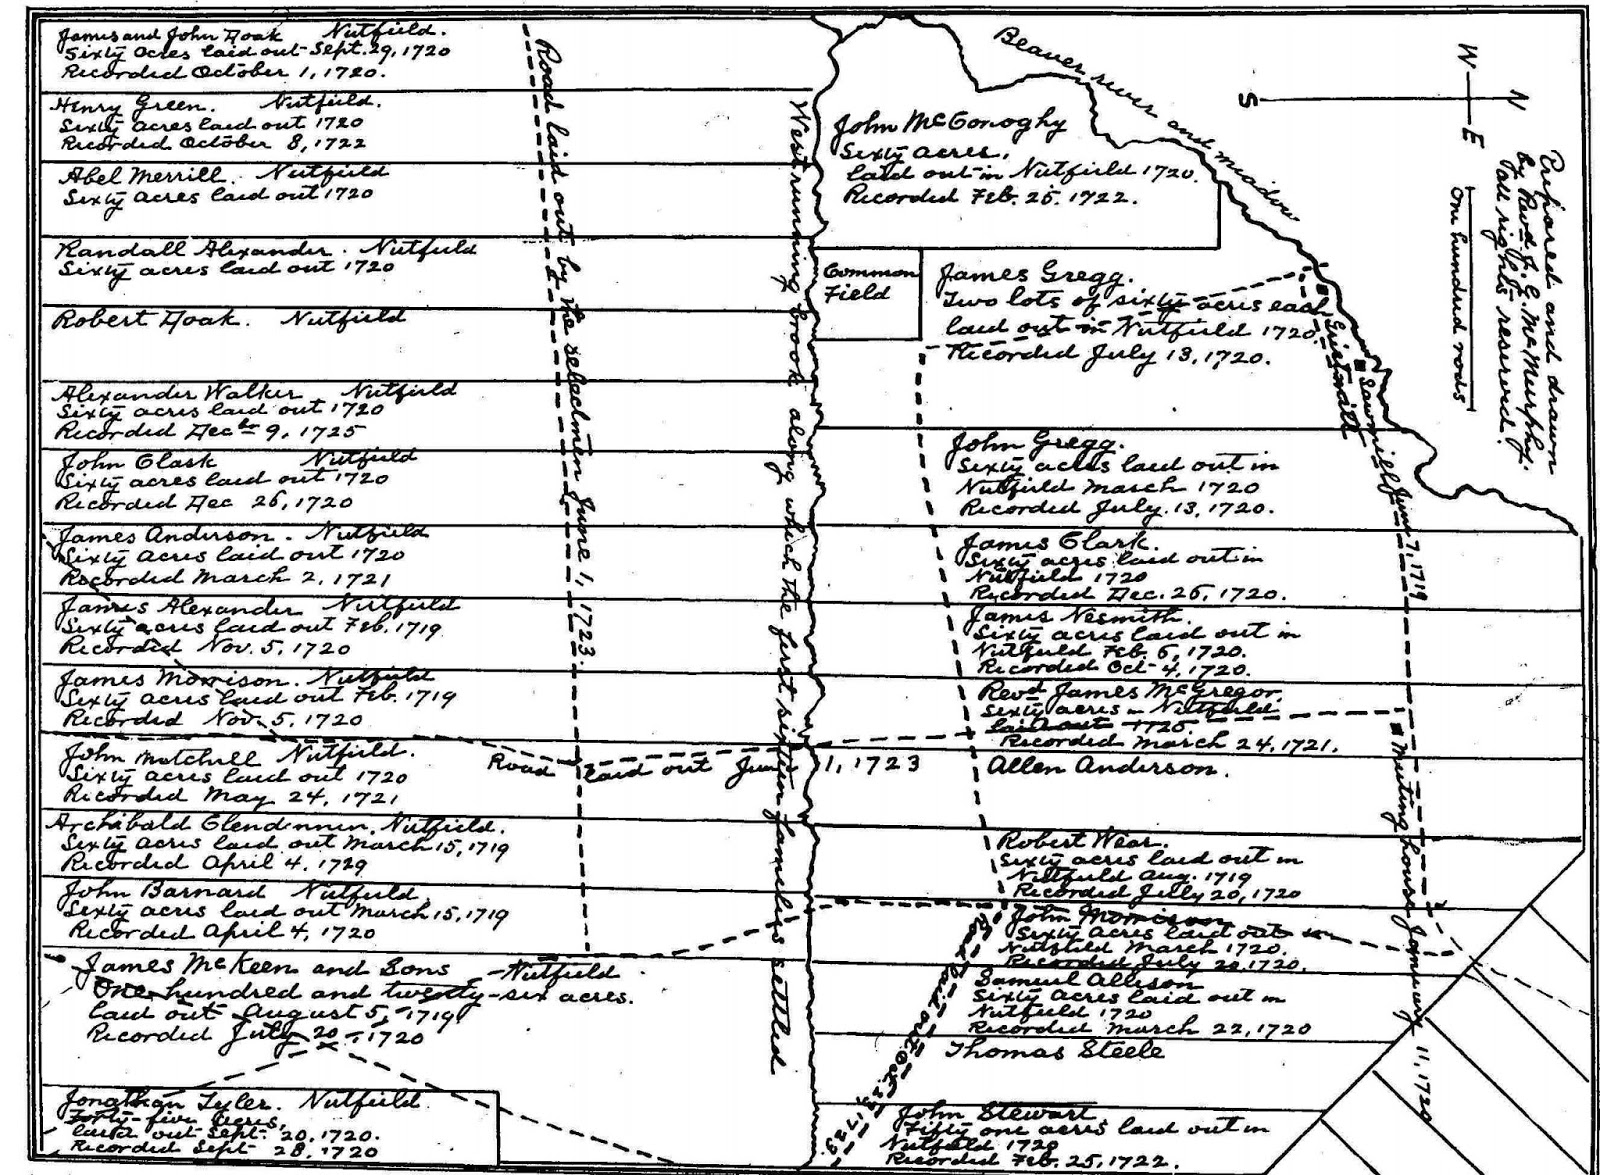 James and John Doak Nutfield.
Sixty acres laid out Sept. 29, 1720
Recorded October 1, 1720.
Henry Green. Nutfield.
Sixty acres laid out 1720
Recorded October 8, 1722
Abel Merrill. Nutfield
Sixty acres laid out 1720
Randall Alexander. Nutfield
Sixty acres laid out 1720
Robert Doak. Nutfield
Alexander Walker Nutfield
Sixty acres laid out 1720
Recorded Decbr 9, 1725
John Clark Nutfield
Sixty acres laid out 1720
Recorded Dec 26, 1720
James Anderson. Nutfield
Sixty acres laid out 1720
Recorded March 2, 1721
James Alexander Nutfield
Sixty acres laid out Feb. 1719
Recorded Nov. 5, 1720
James Morrison. Nutfield
Sixty acres laid out Feb. 1719
Recorded Nov. 5, 1720
John Mitchell Nutfield.
Sixty acres laid out 1720
Recorded May 24, 1721
Archibald Clendennen, Nutfield.
Sixty acres laid out March 15, 1719
Recorded April 4, 1729
John Barnard Nutfield
Sixty acres laid out March 15, 1719
Recorded April 4, 1720
James McKeen and Sons Nutfield
One hundred and twenty-six acres.
laid out August 5, 1719
Recorded July 20, 1720
Jonathan Tyler. Nutfield
Forty-five acres,
laid out Sept. 20, 1720.
Recorded Sept 28, 1720
Road laid out by the selectmen June 1, 1723.
Road laid out June 1, 1723
West running brook along which the first sixteen families settled
Beaver river and meadow
John McConoghy
Sixty acres.
laid out in Nutfield 1720.
Recorded Feb. 25, 1722.
Common
Field
James Gregg.
Two lots of sixty acres each
laid out in Nutfield 1720.
Recorded July 13, 1720.
Gristmill
Sawmill June 7, 1719
John Gregg.
Sixty acres laid out in
Nutfield March 1720
Recorded July 13, 1720.
James Clark.
Sixty acres laid out in
Nutfield 1720
Recorded Dec. 26, 1720.
James Nesmith.
Sixty acres laid out in
Nutfield Feb. 6, 1720.
Recorded Oct 4, 1720.
Revd James McGregor
Sixty acres Nutfield
laid out 1720.
Recorded March 24, 1721.
Allen Anderson.
Robert Wear.
Sixty acres laid out in
Nutfield Aug. 1719
Recorded July 20, 1720
John Morrison
Sixty acres laid out in
Nutfield March 1720.
Recorded July 20, 1720.
Samuel Allison
Sixty acres laid out in
Nutfield 1720
Recorded March 22, 1720
Thomas Steele
John Stewart
Fifty one acres laid out in
Nutfield 1720
Recorded Feb. 25, 1722.
Road laid out Oct. 23, 1729
Meeting house January 11, 1720
W
N
E
S
Prepared and drawn
by Revd J. G. McMurphy.
all rights reserved.
One hundred rods